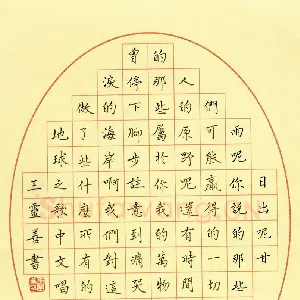 日出呢廿
雨呢你說的那些
們可能贏得的一切
人的原野呢還有時間
的那些屬於你我的萬物
曾停下腳步註意到痛哭
淚的海岸啊我們對這
做了些什麼所有的
地球之歌中文唱
三靈善書